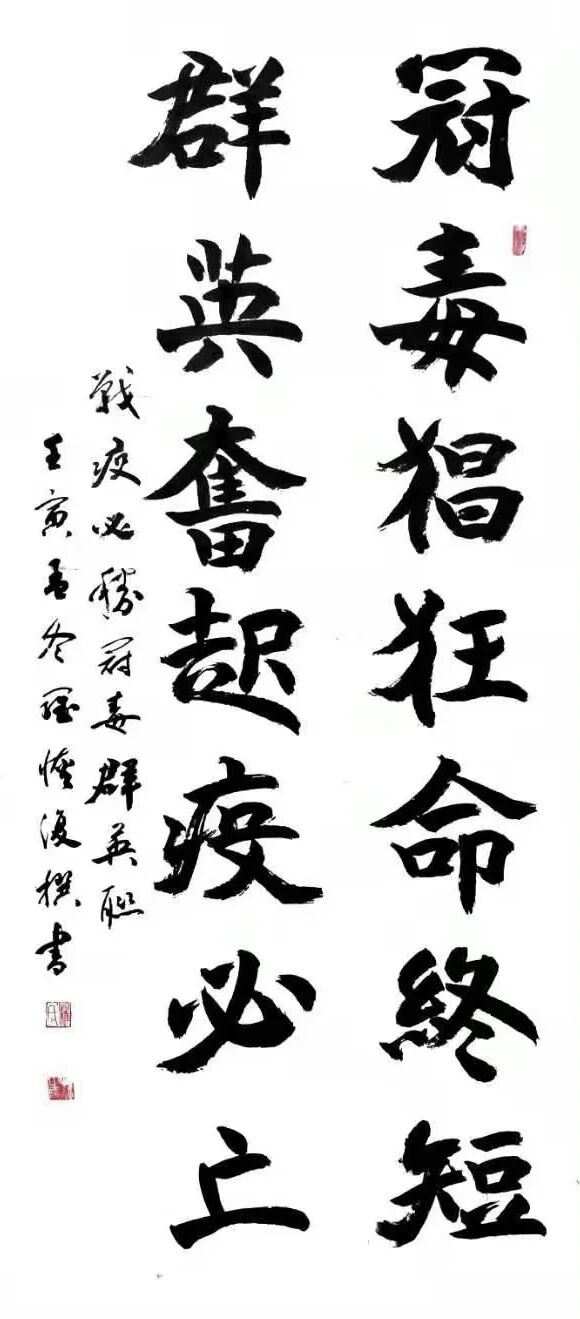 冠毒猖狂命終短
群英奮起疫必亡
戰疫必勝冠毒群英联
壬寅孟冬羅恢復撰書